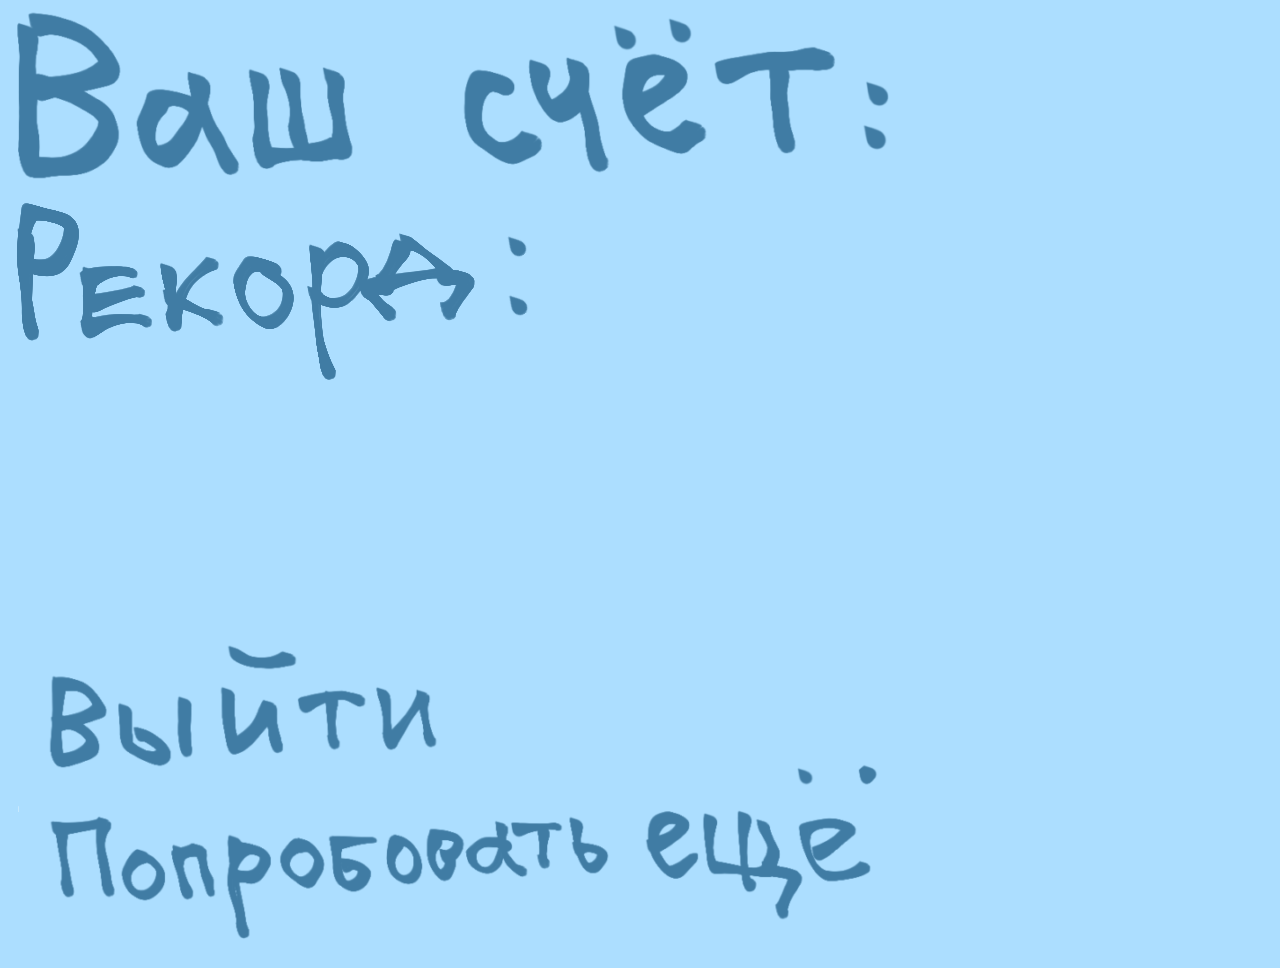 Ваш счёт:
Рекорд:
Выйти
Попробовать ещё